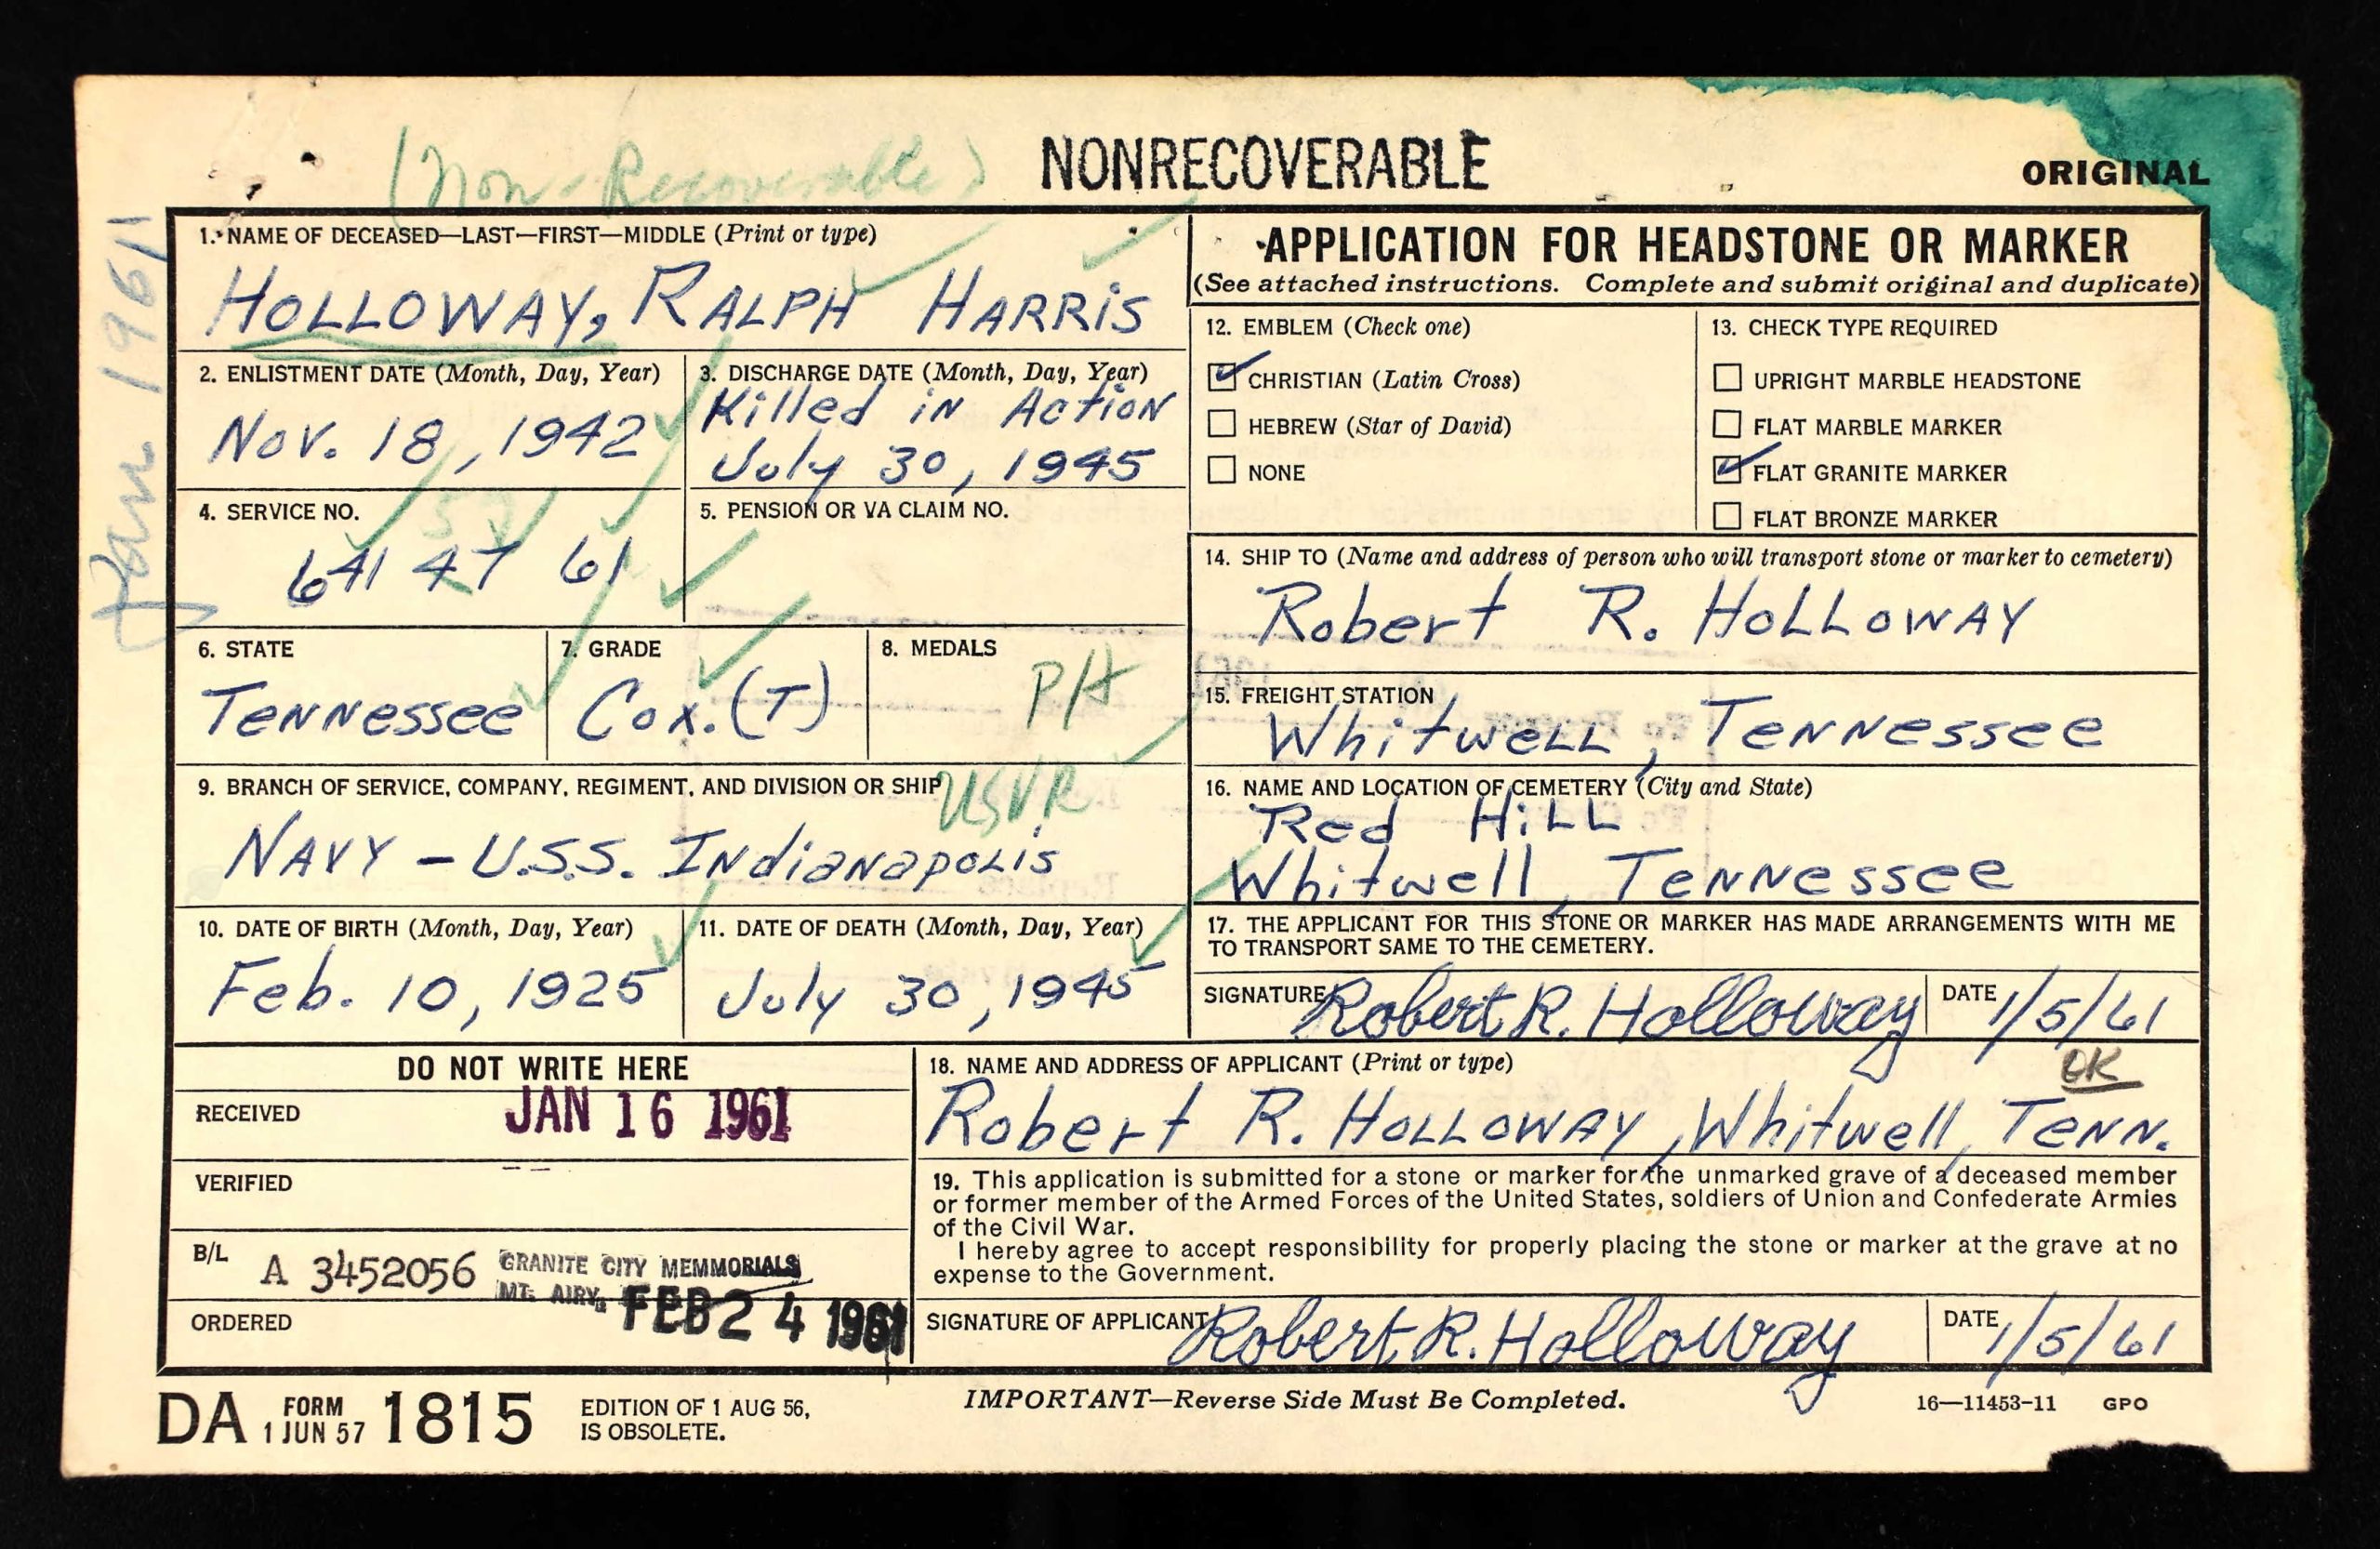 Jan 1961
(Non-Recoverable)
NONRECOVERABLE
ORIGINAL
1. NAME OF DECEASED—LAST—FIRST—MIDDLE (Print or type)
HOLLOWAY, RALPH HARRIS
2. ENLISTMENT DATE (Month, Day, Year)
Nov. 18, 1942
3. DISCHARGE DATE (Month, Day, Year)
Killed in Action
July 30, 1945
4. SERVICE NO.
57
641 47 61
5. PENSION OR VA CLAIM NO.
6. STATE
Tennessee
7. GRADE
Cox. (T)
8. MEDALS
PH
9. BRANCH OF SERVICE, COMPANY, REGIMENT, AND DIVISION OR SHIP
USNR
NAVY – U.S.S. Indianapolis
10. DATE OF BIRTH (Month, Day, Year)
Feb. 10, 1925
11. DATE OF DEATH (Month, Day, Year)
July 30, 1945
APPLICATION FOR HEADSTONE OR MARKER
(See attached instructions. Complete and submit original and duplicate)
12. EMBLEM (Check one)
CHRISTIAN (Latin Cross)
HEBREW (Star of David)
NONE
13. CHECK TYPE REQUIRED
UPRIGHT MARBLE HEADSTONE
FLAT MARBLE MARKER
FLAT GRANITE MARKER
FLAT BRONZE MARKER
14. SHIP TO (Name and address of person who will transport stone or marker to cemetery)
Robert R. Holloway
15. FREIGHT STATION
Whitwell, Tennessee
16. NAME AND LOCATION OF CEMETERY (City and State)
Red Hill
Whitwell, Tennessee
17. THE APPLICANT FOR THIS STONE OR MARKER HAS MADE ARRANGEMENTS WITH ME
TO TRANSPORT SAME TO THE CEMETERY.
SIGNATURE Robert R. Holloway DATE 1/5/61
DO NOT WRITE HERE
RECEIVED JAN 16 1961
VERIFIED
B/L A 3452056 GRANITE CITY MEMMORIALS
MT. AIRY,
ORDERED FEB 24 1961
18. NAME AND ADDRESS OF APPLICANT (Print or type)
OK
Robert R. Holloway, Whitwell, Tenn.
19. This application is submitted for a stone or marker for the unmarked grave of a deceased member
or former member of the Armed Forces of the United States, soldiers of Union and Confederate Armies
of the Civil War.
I hereby agree to accept responsibility for properly placing the stone or marker at the grave at no
expense to the Government.
SIGNATURE OF APPLICANT Robert R. Holloway DATE 1/5/61
DA FORM 1 JUN 57 1815
EDITION OF 1 AUG 56,
IS OBSOLETE.
IMPORTANT—Reverse Side Must Be Completed.
16—11453-11 GPO